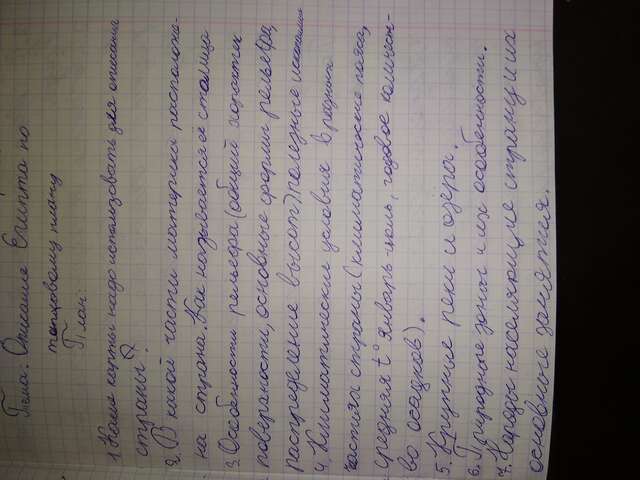 Тема: Описание Египта по
типовому плану
План:
1. Какие карты надо использовать для описания
страны?
2. В какой части материка расположе-
на страна. Как называется её столица
3. Особенности рельефа (общий характер
поверхности, основные формы рельефа,
распределение высот) полезные ископаемые
4. Климатические условия в разных
частях страны (климатические пояса,
средняя t° январь-июль, годовое количест-
во осадков).
5. Крупные реки и озёра.
6. Природные зоны и их особенности.
7. Народы населяющие страну и их
основные занятия.